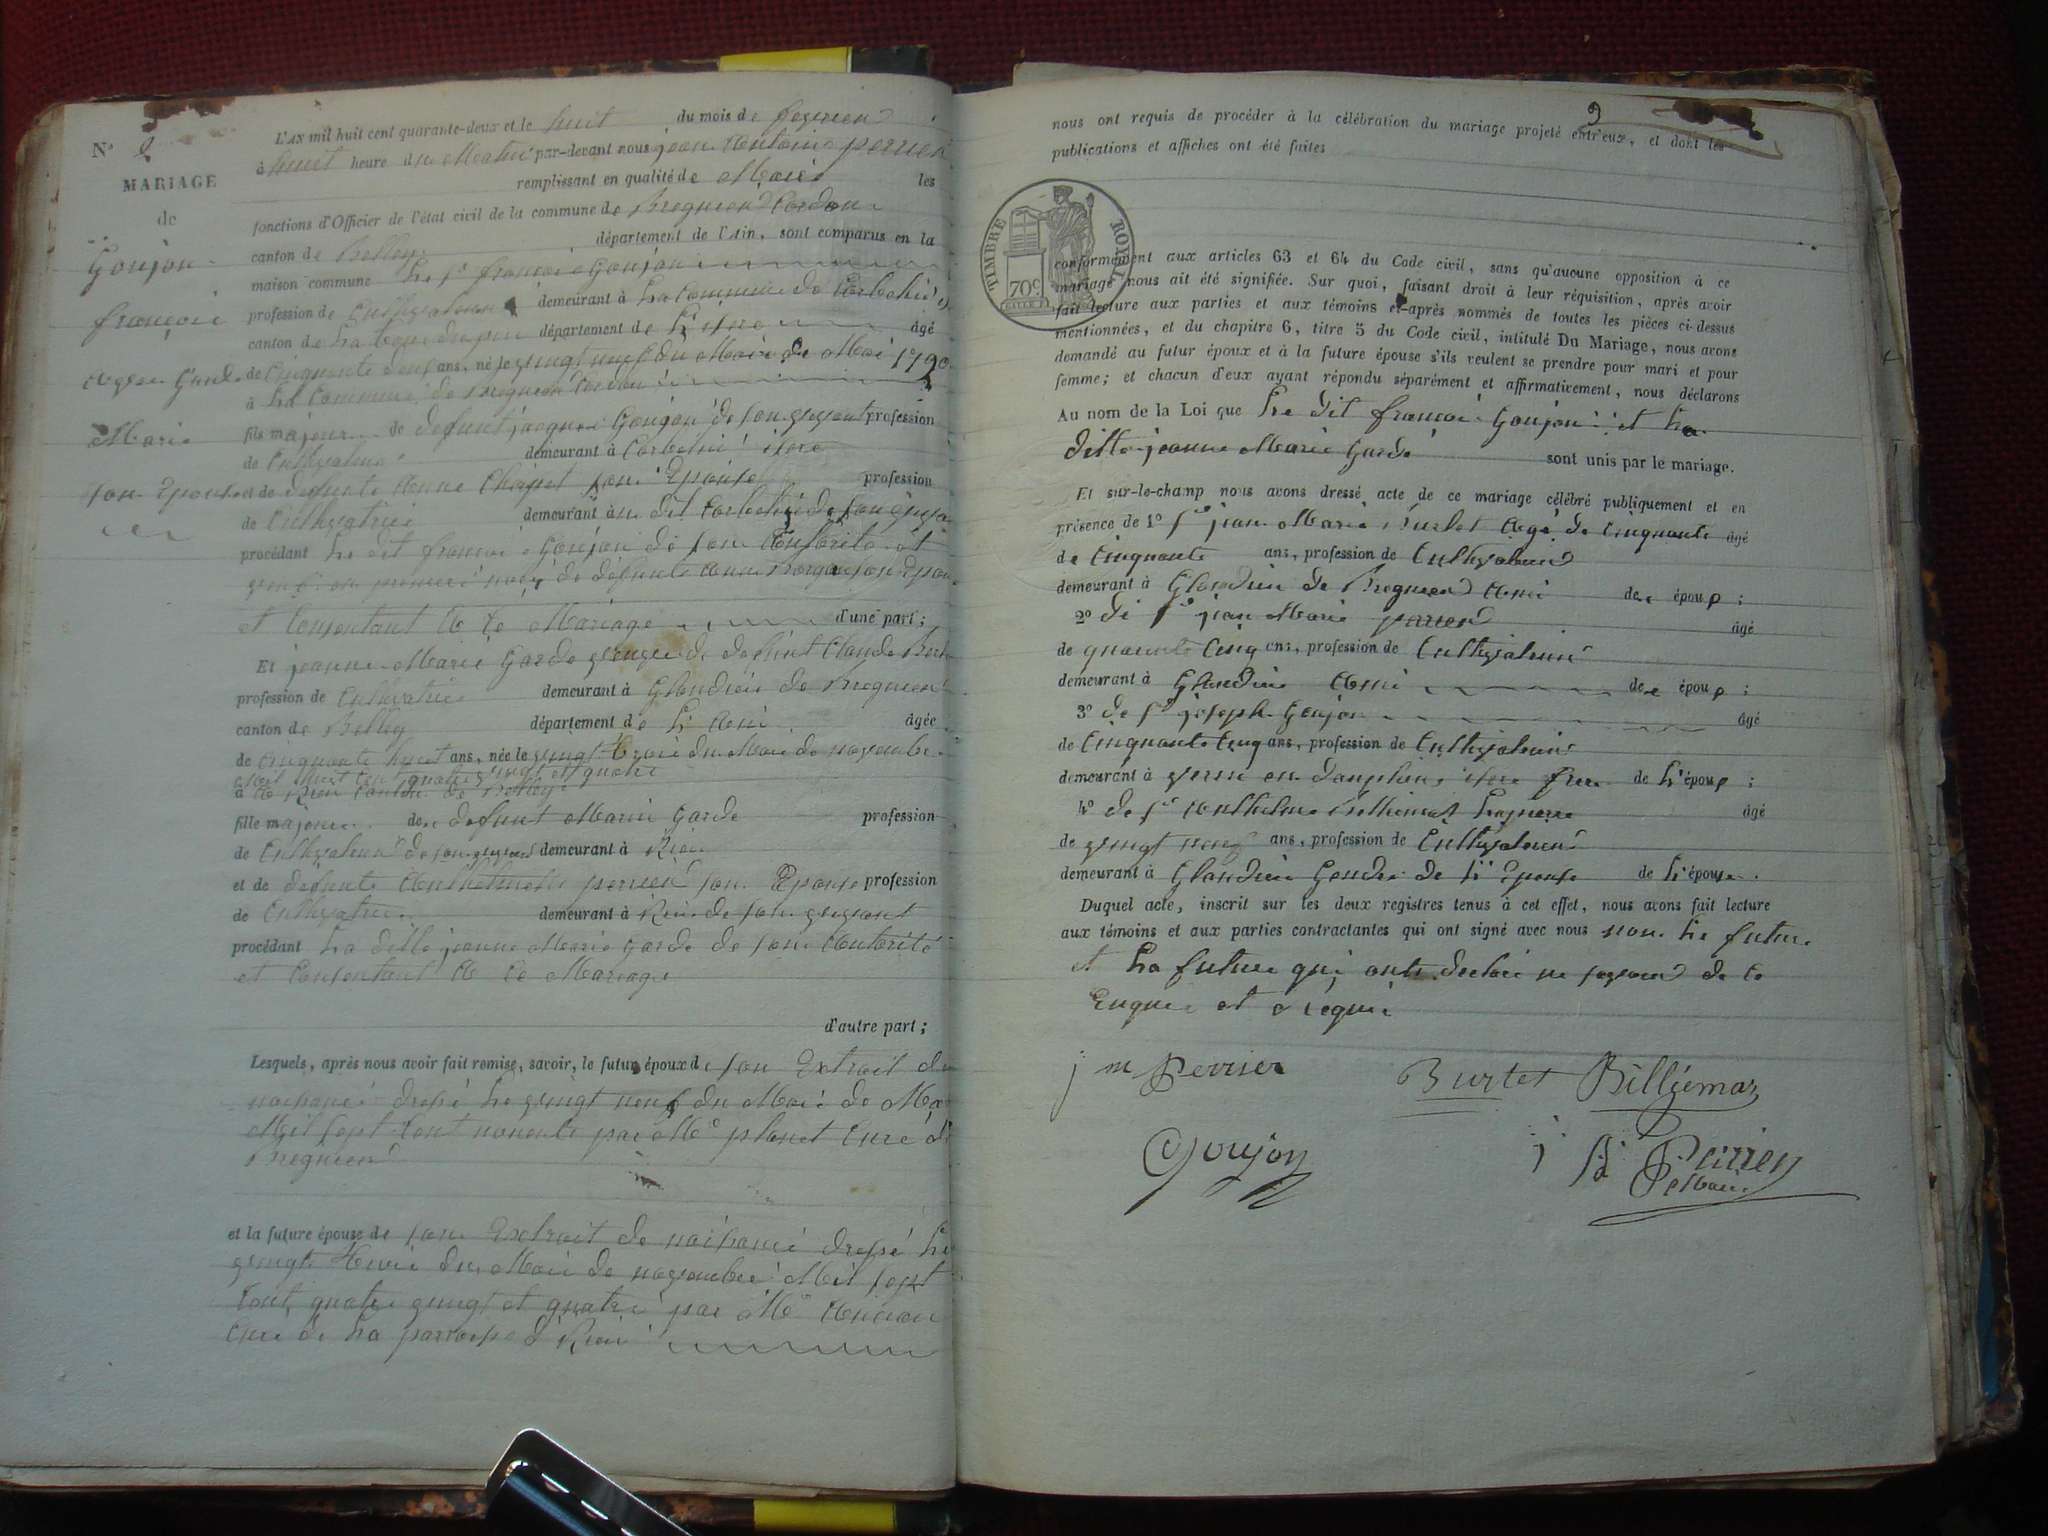 N° 2
MARIAGE
de
Goujon
françoi
avec Garde
Marie
son Epouse
L'AN mil huit cent quarante-deux et le huit du mois de fevrier
à huit heure du Matin par-devant nous jean Antoine perrier
remplissant en qualité de Maire les
fonctions d'Officier de l'état civil de la commune de Bregnier Cordon
canton de Belley département de l'Ain, sont comparus en la
maison commune Le sr françoi Goujon
profession de Cultivateur demeurant à La Commune de Corbelin
canton de département de L'isere âgé
de Cinquante deux ans, né le vingt neuf du Mois de Mai 1790
à La Commune de Bregnier Cordon
fils majeur de defunt jacque Goujon de son vivant profession
de Cultivateur demeurant à Corbelin isere
et de defunte Anne Chapet son Epouse profession
de Cultivatrice demeurant au dit Corbelin de son viva
procédant Le dit françoi Goujon de son Autorité et
de defunte Anne
et Consentant A Ce Mariage d'une part ;
Et jeanne Marie Garde veuve de defunt Claude
profession de Cultivatrice demeurant à Glandieu de Bregnier
canton de Belley département de L'Ain âgée
de cinquante huit ans, née le vingt du Moi de novembre
mil sept cent quatre vingt et quatre
à de Belley
fille majeure de defunt Marin Garde profession
de Cultivateur de son vivant demeurant à
et de defunte Anthelmette perrier son Epouse profession
de Cultivatrice demeurant à de son vivant
procédant La ditte jeanne Marie Garde de son Autorité
et Consentant A Ce Mariage
d'autre part ;
Lesquels, après nous avoir fait remise, savoir, le futur époux de son Extrait de
naisance dressé Le vingt neuf du Moi de Mai
Mil sept Cent nonente par Mr planet Curé de
Bregnier
et la future épouse de son Extrait de naisance dressé Le
vingt du Moi de novembre Mil sept
Cent quatre vingt et quatre par Mr
Curé de La parroisse
9
nous ont requis de procéder à la célébration du mariage projeté entr'eux, et dont les
publications et affiches ont été faites
TIMBRE ROYAL
70c
conformément aux articles 63 et 64 du Code civil, sans qu'aucune opposition à ce
mariage nous ait été signifiée. Sur quoi, faisant droit à leur réquisition, après avoir
fait lecture aux parties et aux témoins ci-après nommés de toutes les pièces ci-dessus
mentionnées, et du chapitre 6, titre 5 du Code civil, intitulé Du Mariage, nous avons
demandé au futur époux et à la future épouse s'ils veulent se prendre pour mari et pour
femme ; et chacun d'eux ayant répondu séparément et affirmativement, nous déclarons
Au nom de la Loi que Le dit françoi Goujon et La
ditte jeanne Marie Garde sont unis par le mariage.
Et sur-le-champ nous avons dressé acte de ce mariage célébré publiquement et en
présence de 1° sr jean Marie Burtet Agé de Cinquante âgé
de Cinquante ans, profession de Cultivateur
demeurant à Glandieu de Bregnier Ami de époux ;
2° de sr jean Marie perrier âgé
de quarente Cinq ans, profession de Cultivateur
demeurant à Glandieu Ami de époux ;
3° de sr joseph Goujon âgé
de Cinquante Cinq ans, profession de Cultivateur
demeurant à en dauphiné isere frere de L'époux ;
4° de sr Anthelme Billiemaz âgé
de vingt neuf ans, profession de Cultivateur
demeurant à Glandieu Gendre de L' Epouse de L'épouse.
Duquel acte, inscrit sur les deux registres tenus à cet effet, nous avons fait lecture
aux témoins et aux parties contractantes qui ont signé avec nous non Le futur
et La future qui ont declaré ne savoir de ce
Enquis et requi
j m Perrier Burtet Billiemaz
Goujon j A Perrier
Maire